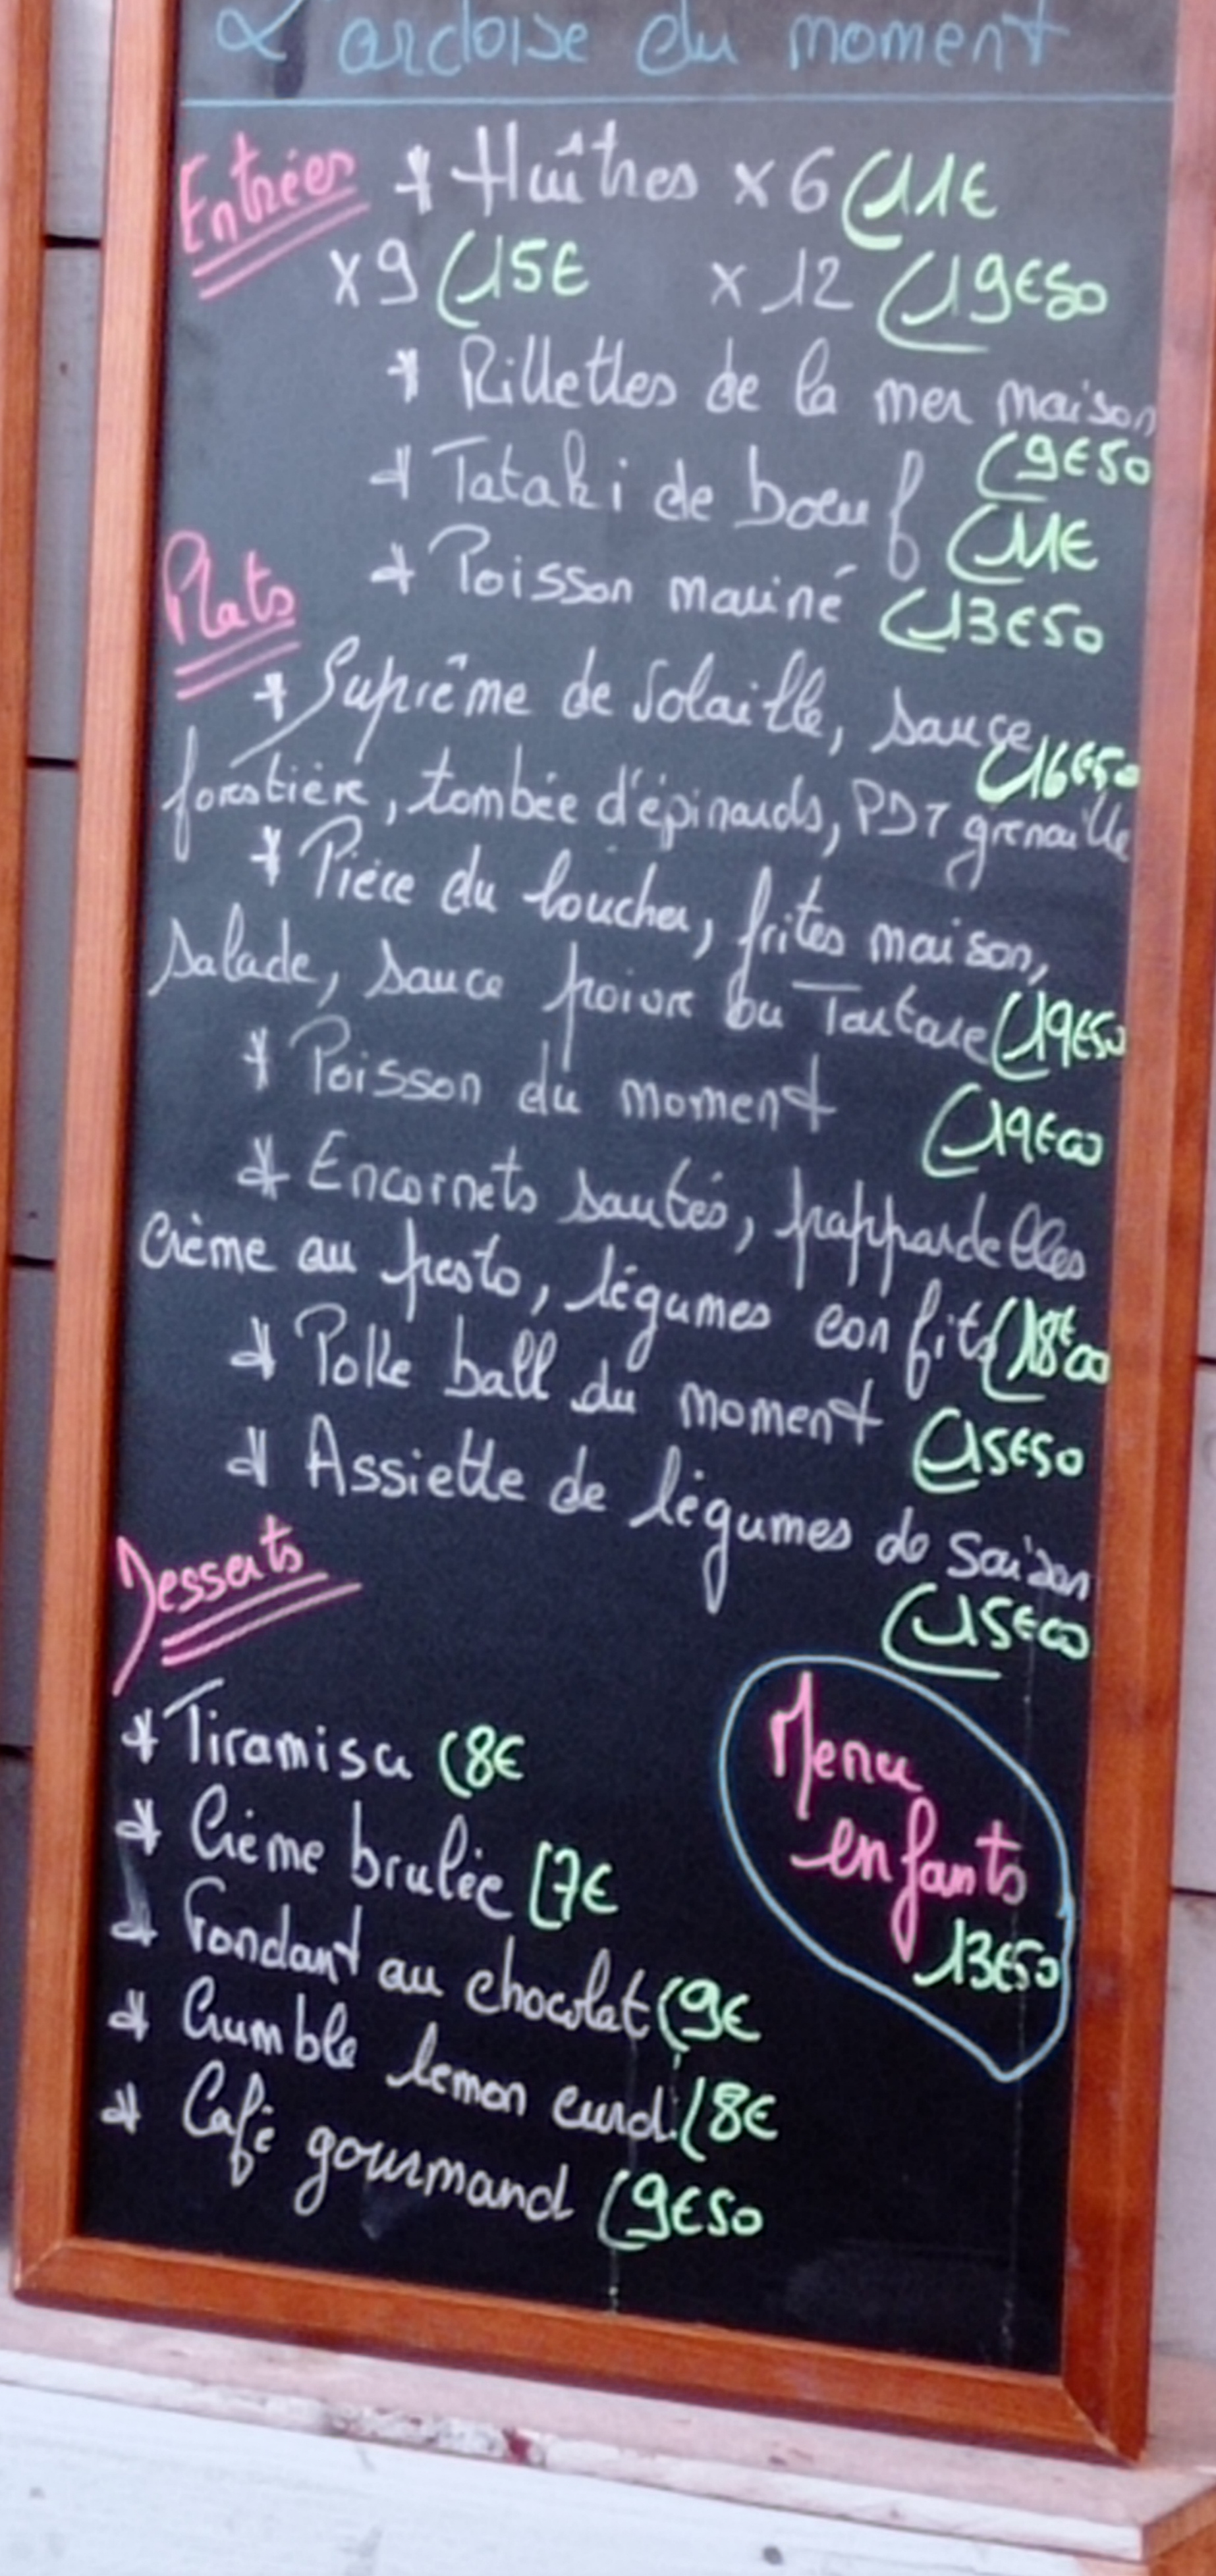 L'ardoise du moment
Entrées * Huîtres x 6 (11€
x 9 (15€ x 12 (19€50
* Rillettes de la mer maison
(9€50
* Tataki de boeuf (11€
* Poisson mariné (13€50
Plats
* Suprême de volaille, sauce (16€50
forestière, tombée d'épinards, PDT grenaille
* Pièce du boucher, frites maison,
salade, sauce poivre ou Tartare (19€50
* Poisson du moment (19€00
* Encornets sautés, pappardelles
crème au pesto, légumes confits (18€00
* Poke ball du moment (15€50
* Assiette de légumes de saison
(15€00
Desserts
* Tiramisu (8€
* Crème brulée (7€
* Fondant au chocolat (9€
* Crumble lemon curd (8€
* Café gourmand (9€50
Menu
enfants
13€50